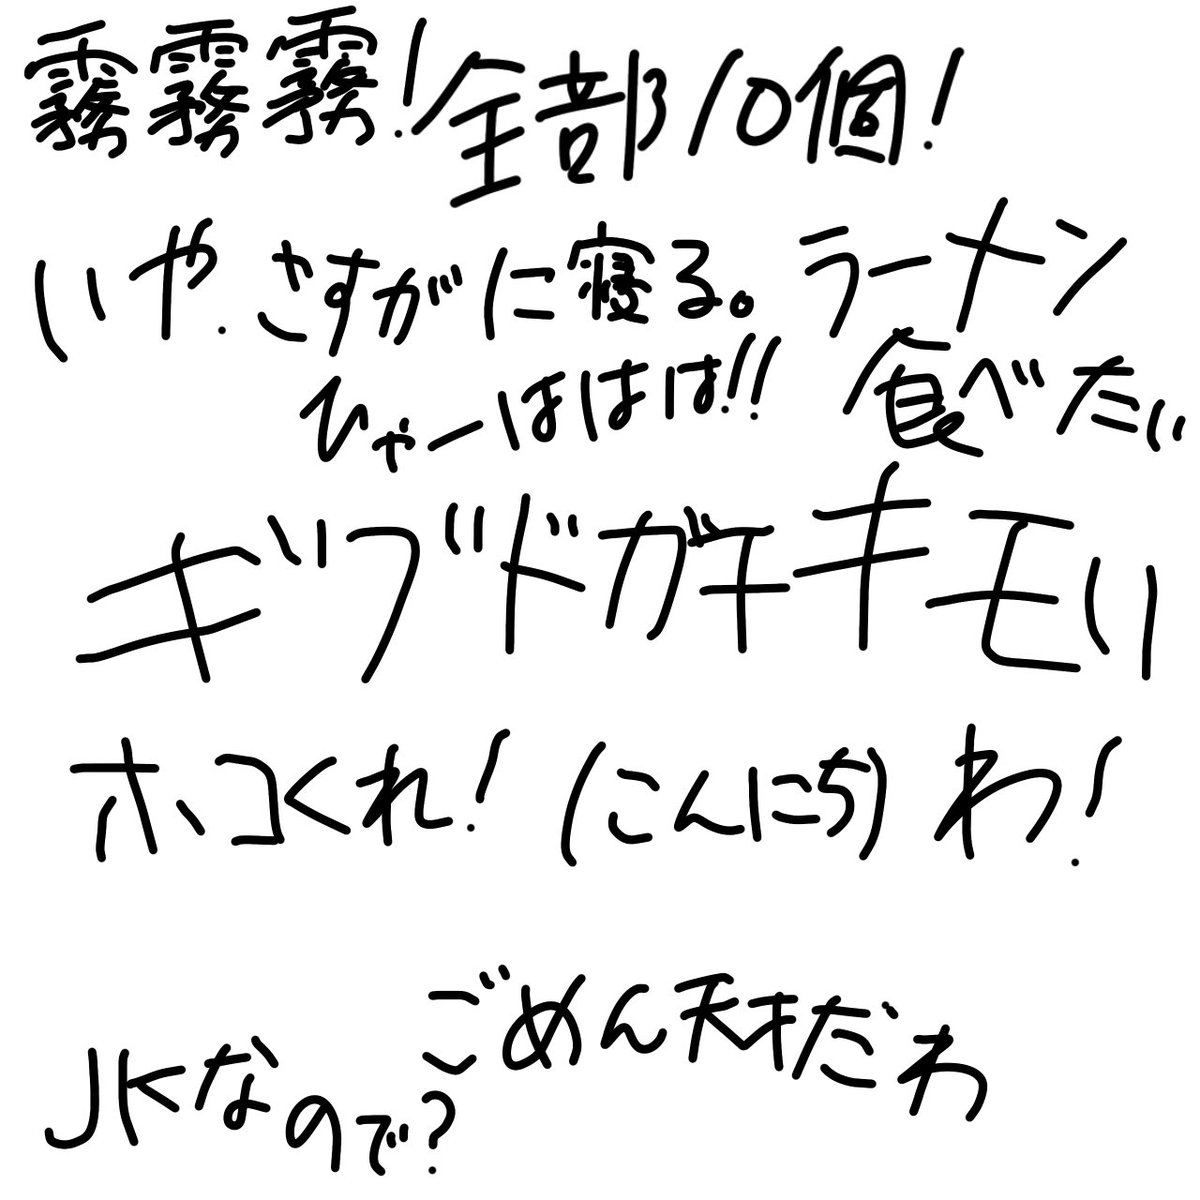 霧霧霧!全部10個!
いや.さすがに寝る。
ラーメン
食べたい
ひゃーははは!!
ギブドガチキモい
ホコくれ!(こんにち)わ!
ごめん天才だわ
JKなので?